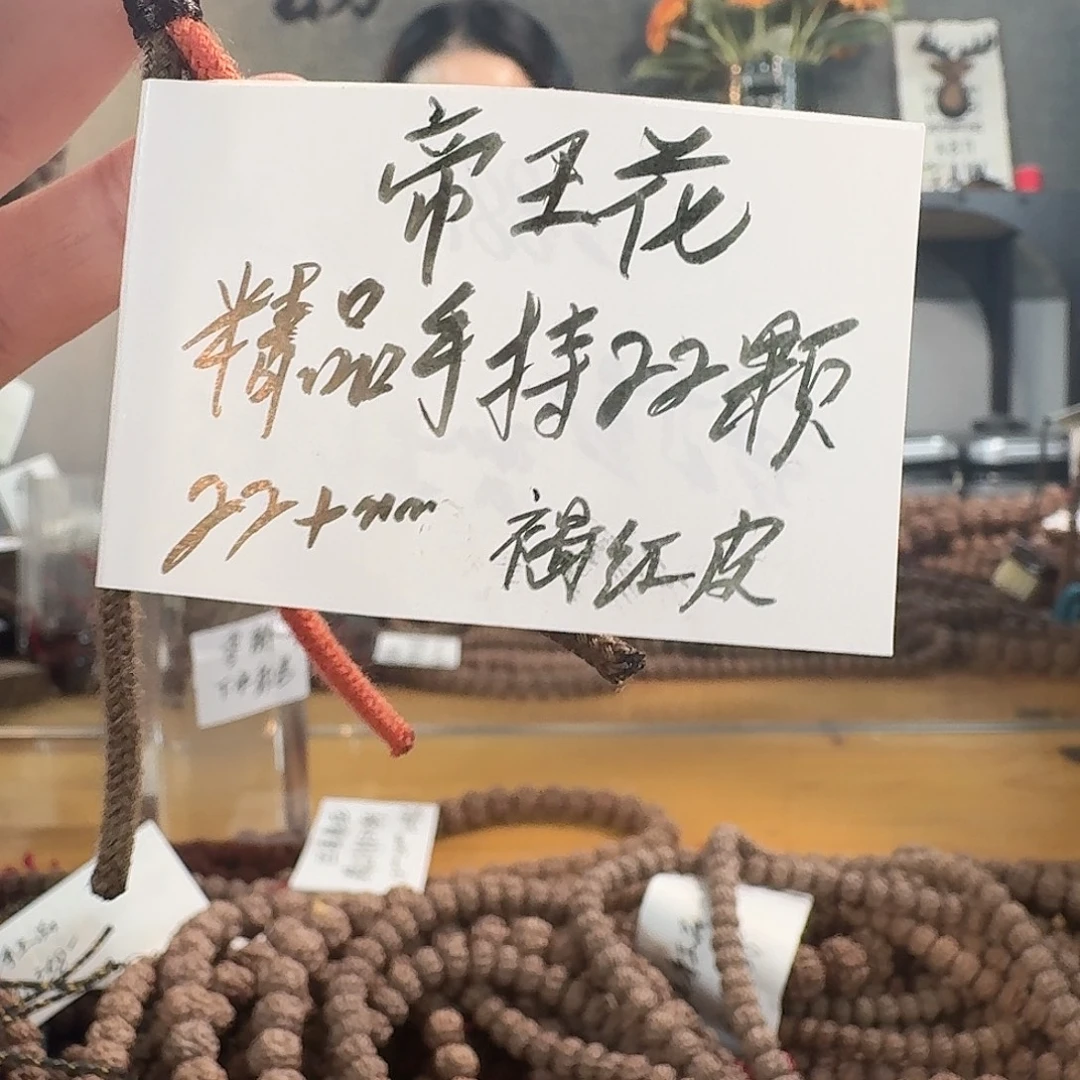 帝王花
精品手持22颗
22+mm 褐红皮